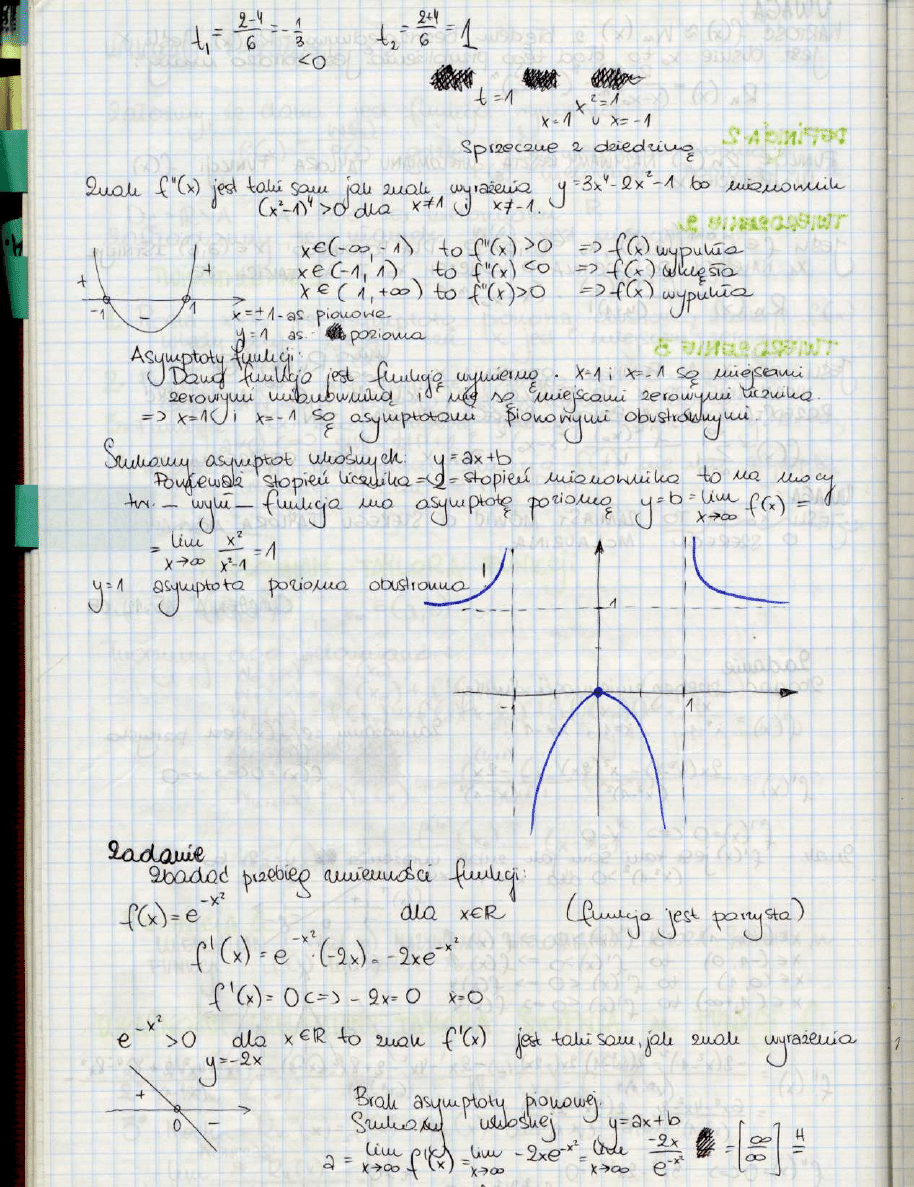 t₁ = (2-4)/6 = -1/3 <0    t₂ = (2+4)/6 = 1
t=1    x²=1
x=1 ∪ x=-1
Sprzeczne z dziedziną
Znak f"(x) jest taki sam jak znak wyrażenia y=3x⁴-2x²-1 bo mianownik
(x²-1)⁴>0 dla x≠1 i x≠-1.
x∈(-∞,-1) to f"(x)>0 => f(x) wypukła
x∈(-1,1) to f"(x)<0 => f(x) wklęsła
x∈(1,+∞) to f"(x)>0 => f(x) wypukła
+ - + -1 1
x=±1-as. pionowe
y=1 as. pozioma
Asymptoty funkcji:
Dana funkcja jest funkcją wymierną. x=1 i x=-1 są miejscami
zerowymi mianownika i nie są miejscami zerowymi licznika.
=> x=1 i x=-1 są asymptotami pionowymi obustronnymi.
Szukamy asymptot ukośnych: y=ax+b
Ponieważ stopień licznika =2= stopień mianownika to na mocy
tw. - wynik - funkcja ma asymptotę poziomą y=b=lim x→∞ f(x) =
= lim x→∞ x²/(x²-1) = 1
y=1 asymptota pozioma obustronna
1
-1 1
Zadanie
Zbadać przebieg zmienności funkcji:
f(x)=e^(-x²)    dla x∈R    (funkcja jest parzysta)
f'(x)=e^(-x²)·(-2x)=-2xe^(-x²)
f'(x)=0<=>-2x=0    x=0
e^(-x²)>0 dla x∈R to znak f'(x) jest taki sam, jak znak wyrażenia
y=-2x
+ 0 -
Brak asymptoty pionowej.
Szukamy ukośnej    y=ax+b
a = lim x→∞ f'(x) = lim x→∞ -2xe^(-x²) = lim x→∞ -2x/e^(-x²) = [∞/∞] H=